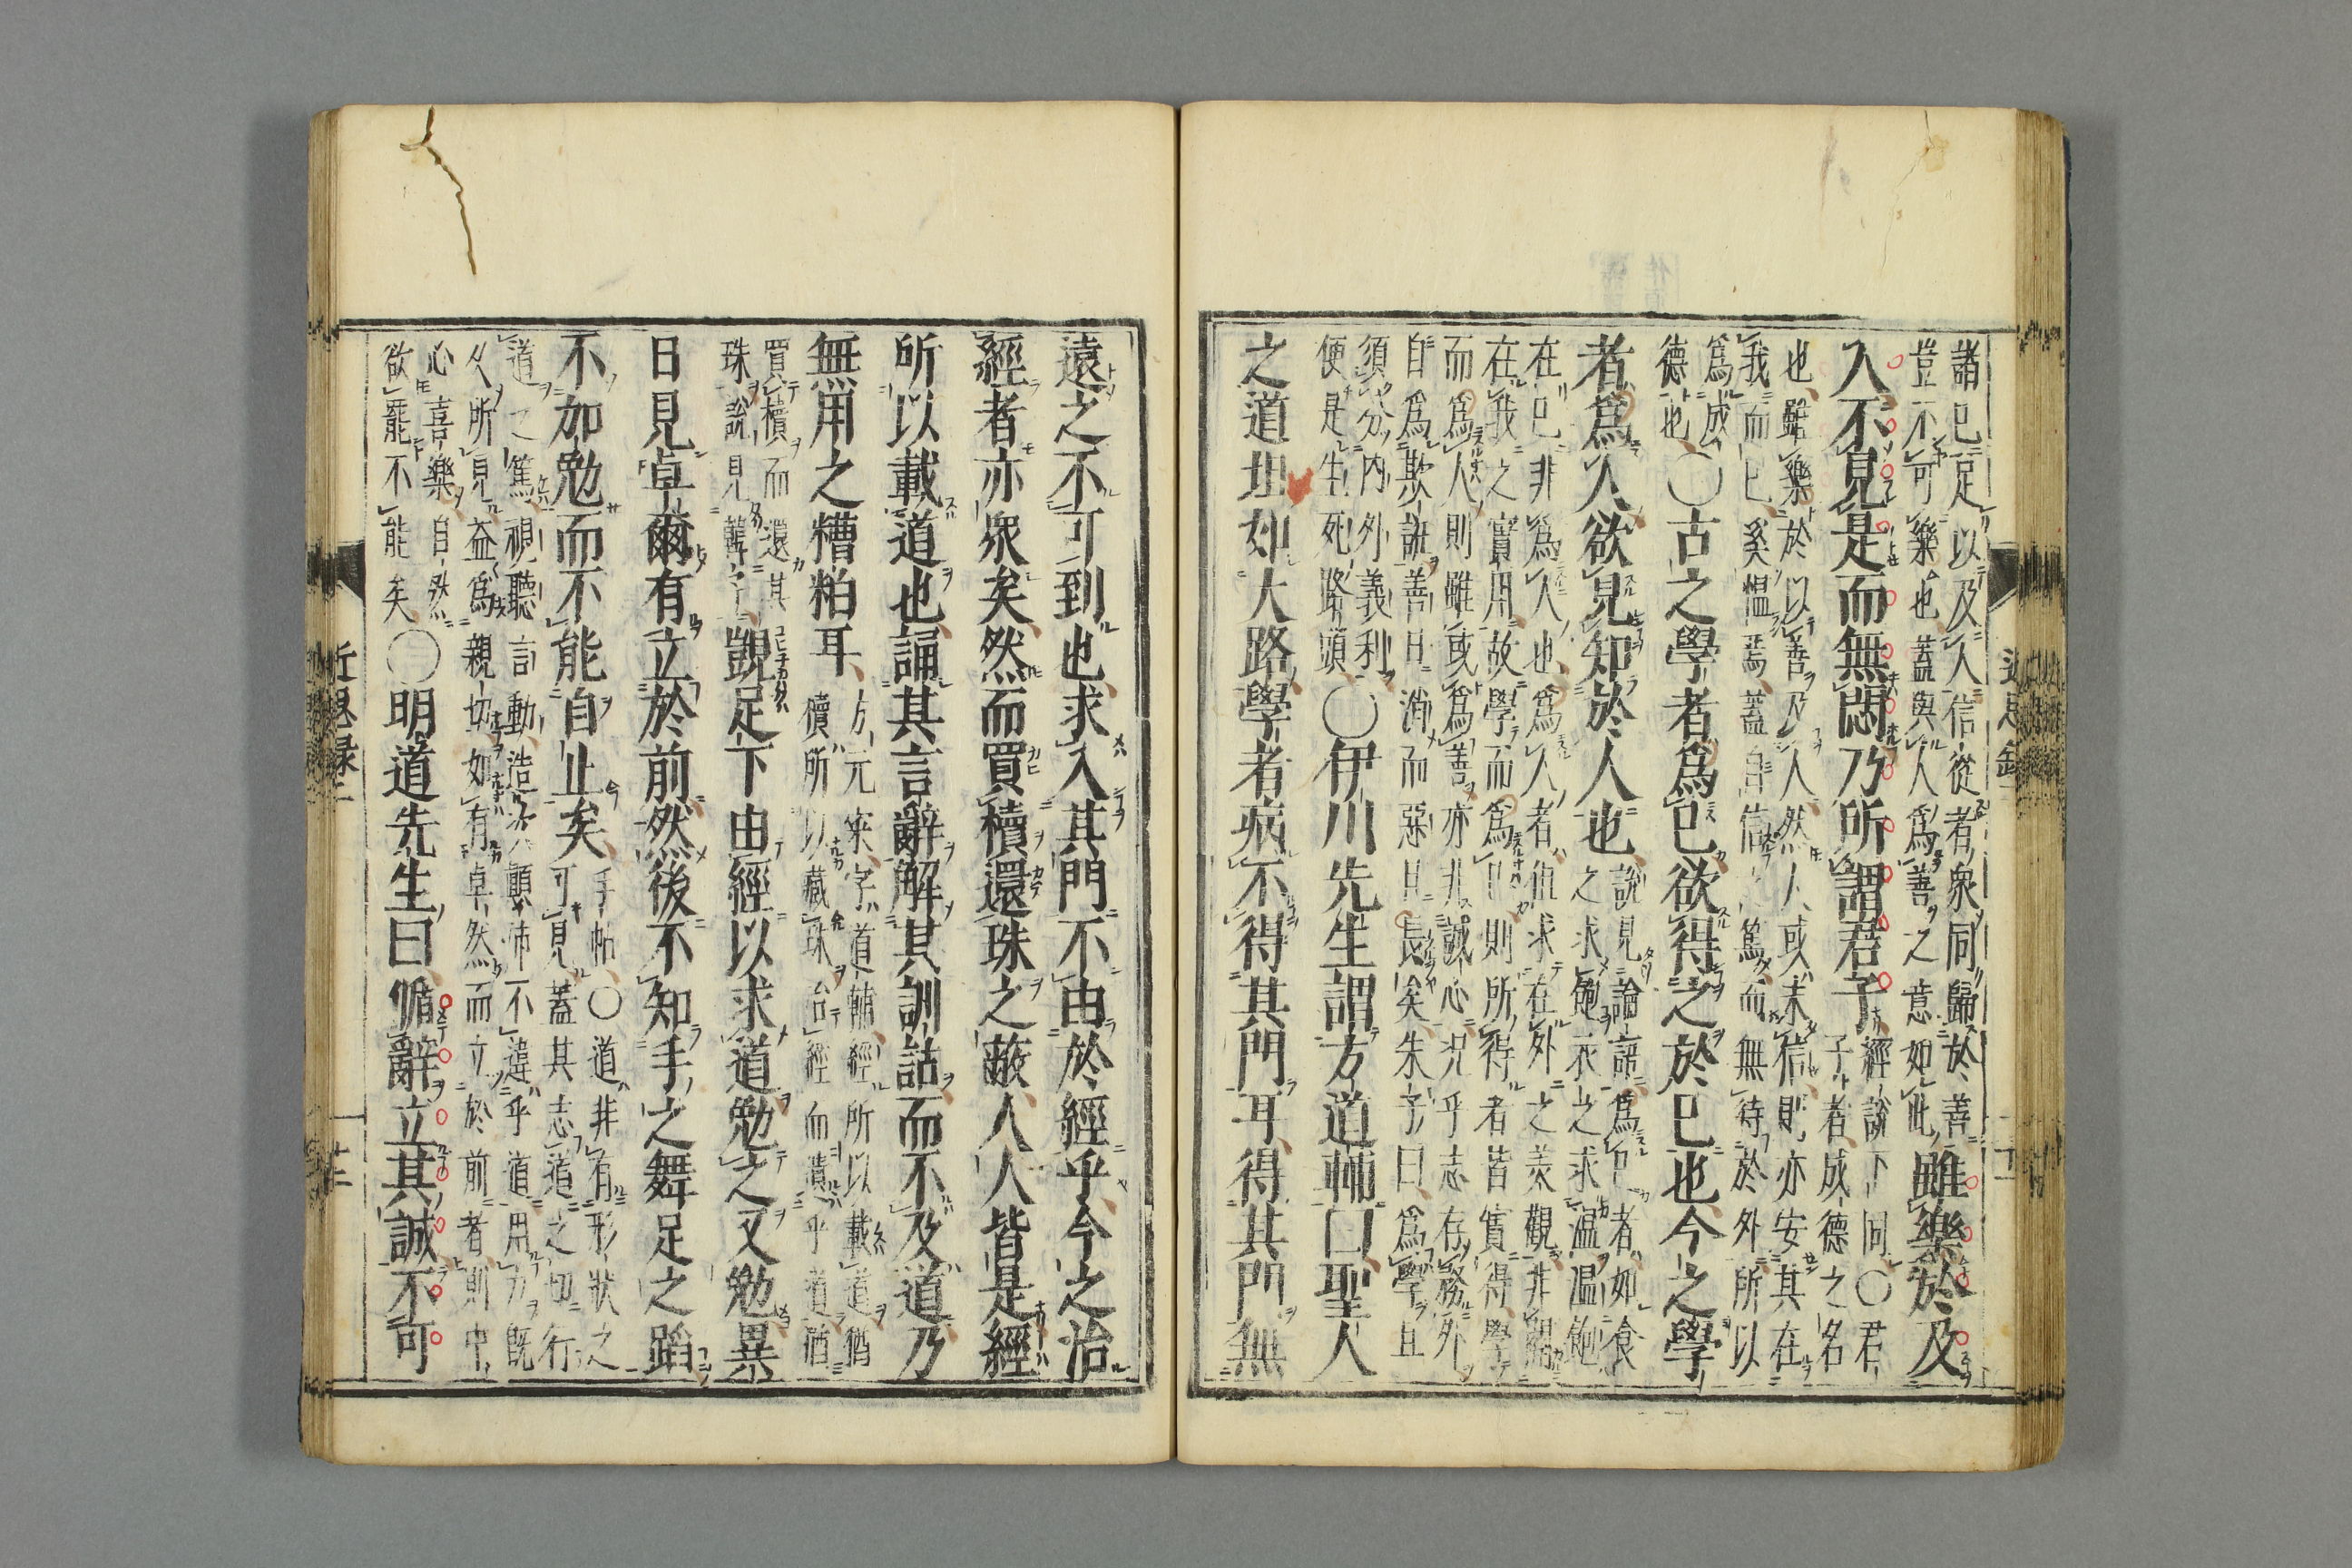 諸己足以及人信從者衆同歸於善
豈不可樂也蓋與人爲善之意如此雖樂於及
人不見是而無悶乃所謂君子經說下同○君
子者成德之名
也雖樂於以善及人然人或未信則亦安其在
我而已奚慍焉蓋自信之篤而無待於外所以
爲成
德也○古之學者爲己欲得之於己也今之學
者爲人欲見知於人也說見論語爲己者如食
之求飽衣之求溫溫飽
在己非爲人也爲人者但求在外之美觀非關
在我之實用故學而爲己則所得者皆實得學
而爲人則雖或爲善亦非誠心況乎志存務外
自爲欺誑善日消而惡日長矣朱子曰爲學且
須分內外義利
便是生死路頭○伊川先生謂方道輔曰聖人
之道坦如大路學者病不得其門耳得其門無
遠之不可到也求入其門不由於經乎今之治
經者亦衆矣然而買櫝還珠之蔽人人皆是經
所以載道也誦其言辭解其訓詁而不及道乃
無用之糟粕耳方元寀字道輔經所以載道猶
櫝所以藏珠治經而遺乎道猶
買櫝而還其
珠說見韓子覬足下由經以求道勉之又勉異
日見卓爾有立於前然後不知手之舞足之蹈
不加勉而不能自止矣手帖○道非有形狀之
可見蓋其志道之切行
道之篤視聽言動造次顚沛不違乎道用力旣
久所見益爲親切如有卓然而立於前者則中
心喜樂自然
欲罷不能矣○明道先生曰脩辭立其誠不可
近思錄二